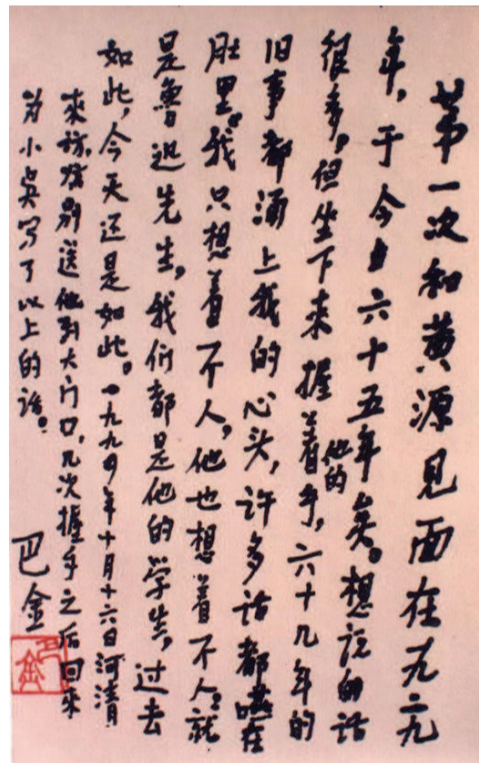 第一次和黄源见面在一九二九
年,于今已六十五年矣。想说的话
很多,但坐下来握着他的手,六十几年的
旧事都涌上我的心头,许多话都咽在
肚里。我只想着一个人,他也想着一个人,就
是鲁迅先生,我们都是他的学生,过去
如此,今天还是如此。一九九四年十月十六日河清
来访,话别送他到大门口,几次握手之后回来
为小吴写了以上的话。
巴金
巴金